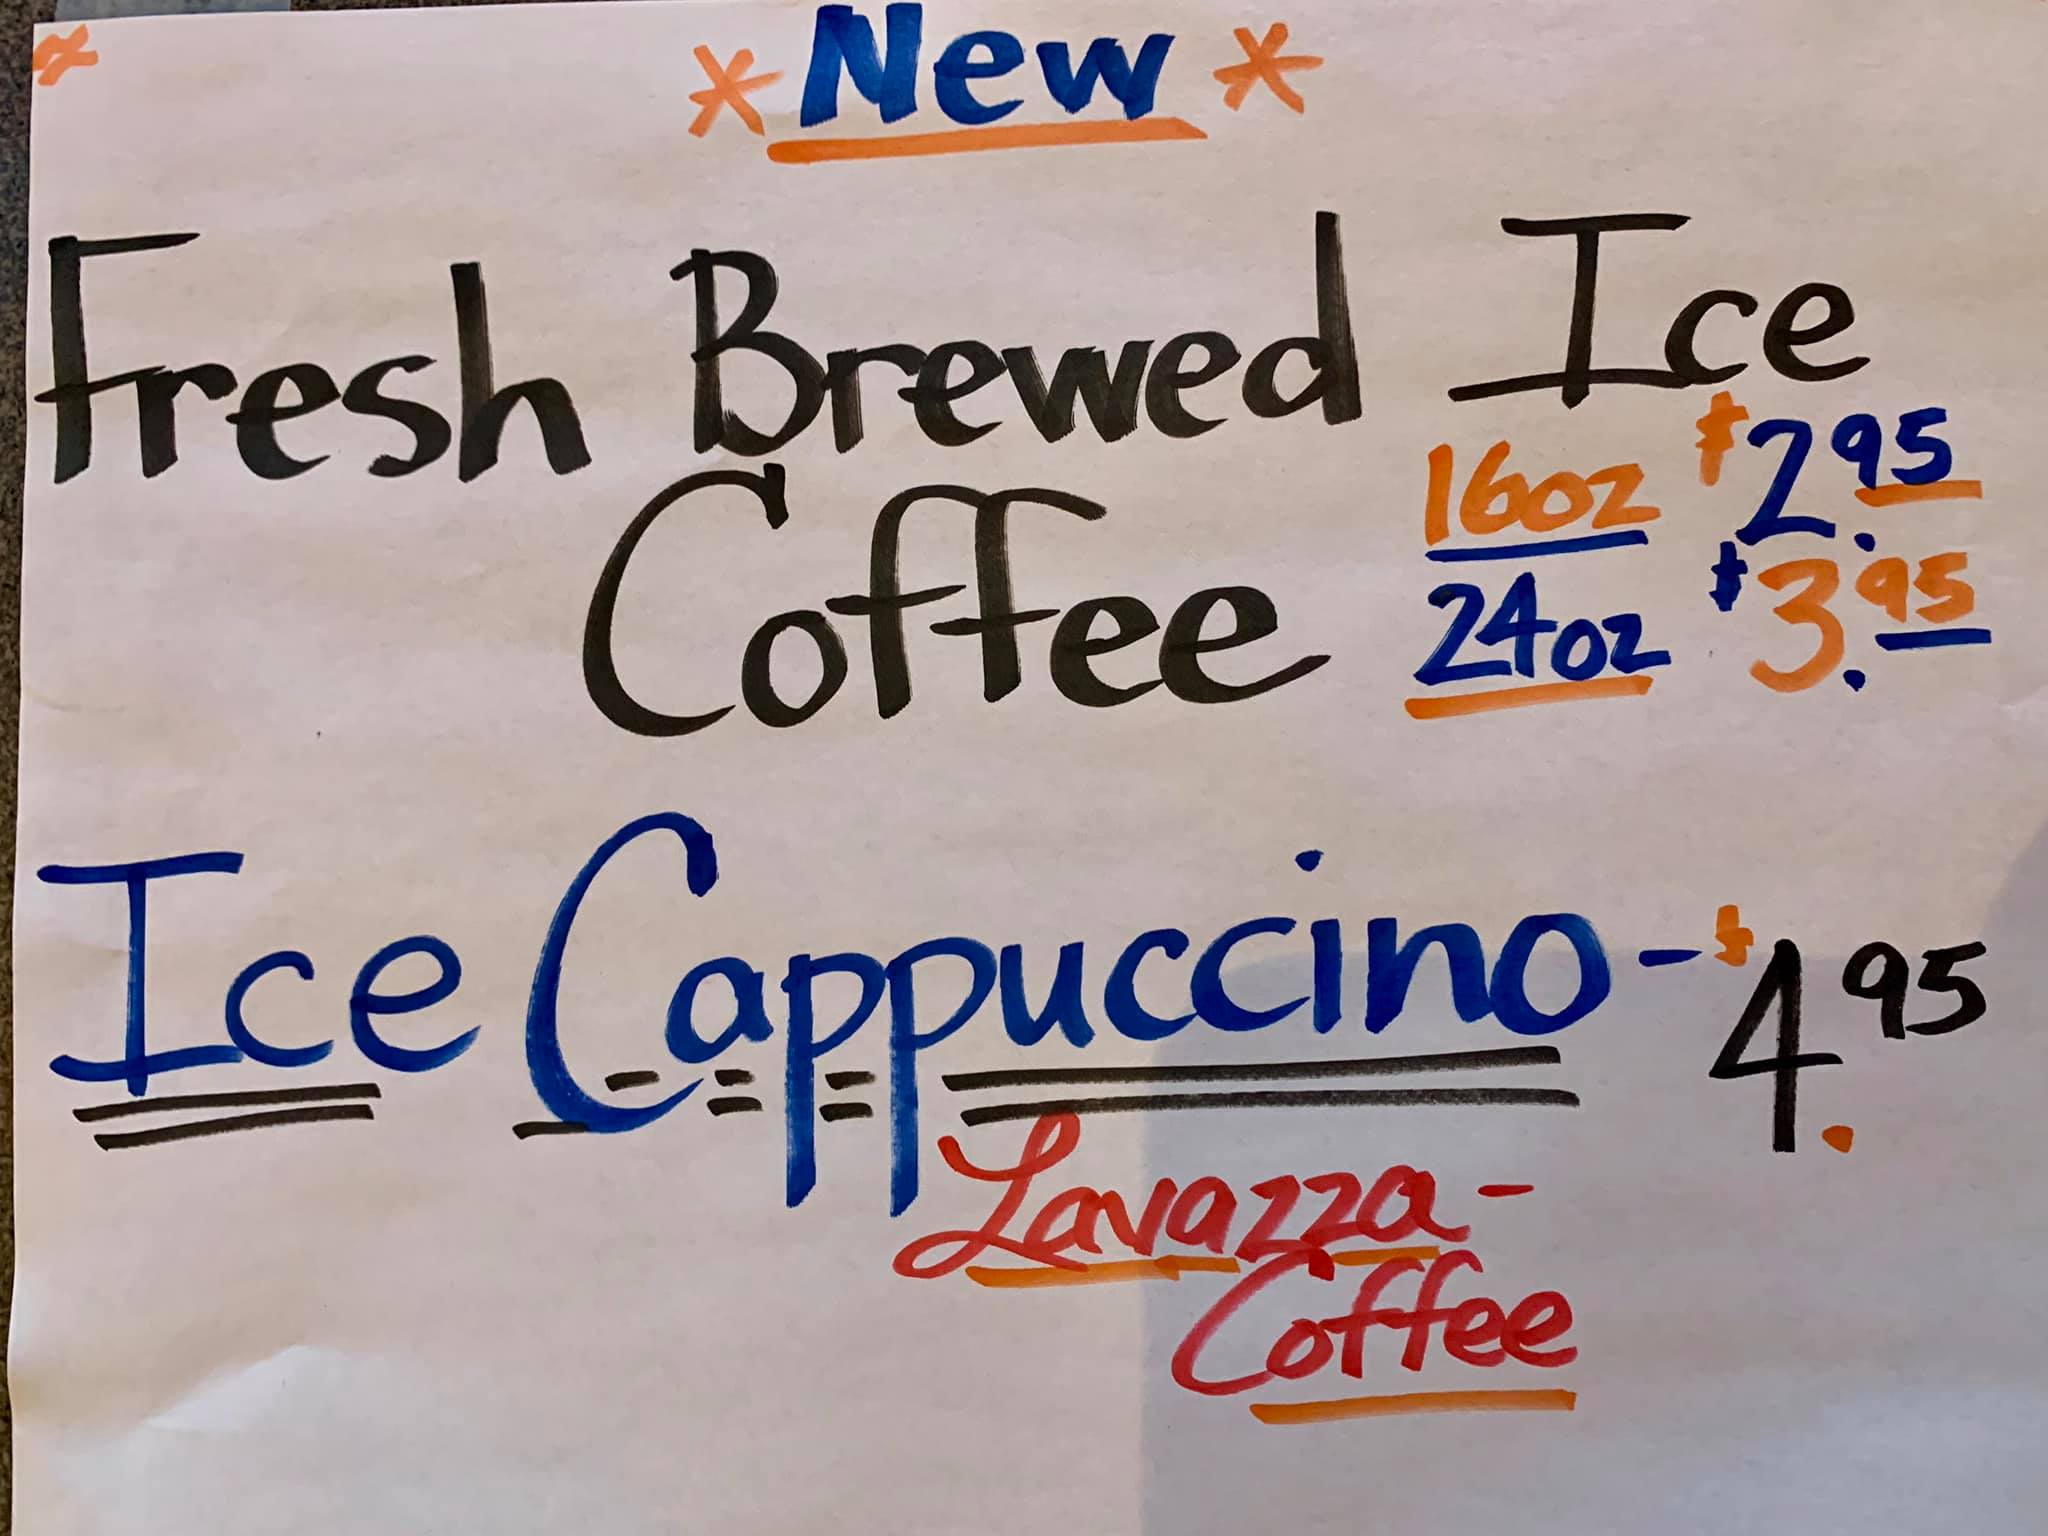 * New *
Fresh Brewed Ice
Coffee
16oz $2.95
24oz $3.95
Ice Cappuccino - $4.95
Lavazza -
Coffee